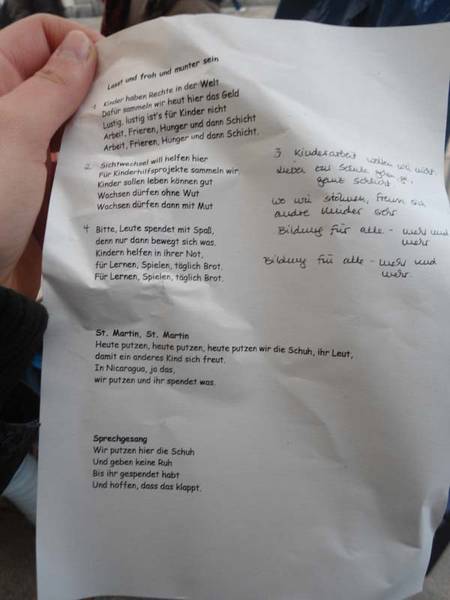 Lasst und froh und munter sein
1. Kinder haben Rechte in der Welt
Dafür sammeln wir heut hier das Geld
Lustig, lustig ist's für Kinder nicht
Arbeit, Frieren, Hunger und dann Schicht
Arbeit, Frieren, Hunger und dann Schicht.
2. Sichtwechsel will helfen hier
Für Kinderhilfsprojekte sammeln wir.
Kinder sollen leben können gut
Wachsen dürfen ohne Wut
Wachsen dürfen dann mit Mut
3 Kinderarbeit wollen wir nicht
Lieber zur Schule gehen
ganz schlicht
wo wir stöhnen, freun sich
andre Kinder sehr
Bildung für alle - mehr und
mehr
Bildung für alle - mehr und
mehr.
4 Bitte, Leute spendet mit Spaß,
denn nur dann bewegt sich was.
Kindern helfen in ihrer Not,
für Lernen, Spielen, täglich Brot.
Für Lernen, Spielen, täglich Brot.
St. Martin, St. Martin
Heute putzen, heute putzen, heute putzen wir die Schuh, ihr Leut,
damit ein anderes Kind sich freut.
In Nicaragua, ja das,
wir putzen und ihr spendet was.
Sprechgesang
Wir putzen hier die Schuh
Und geben keine Ruh
Bis ihr gespendet habt
Und hoffen, dass das klappt.